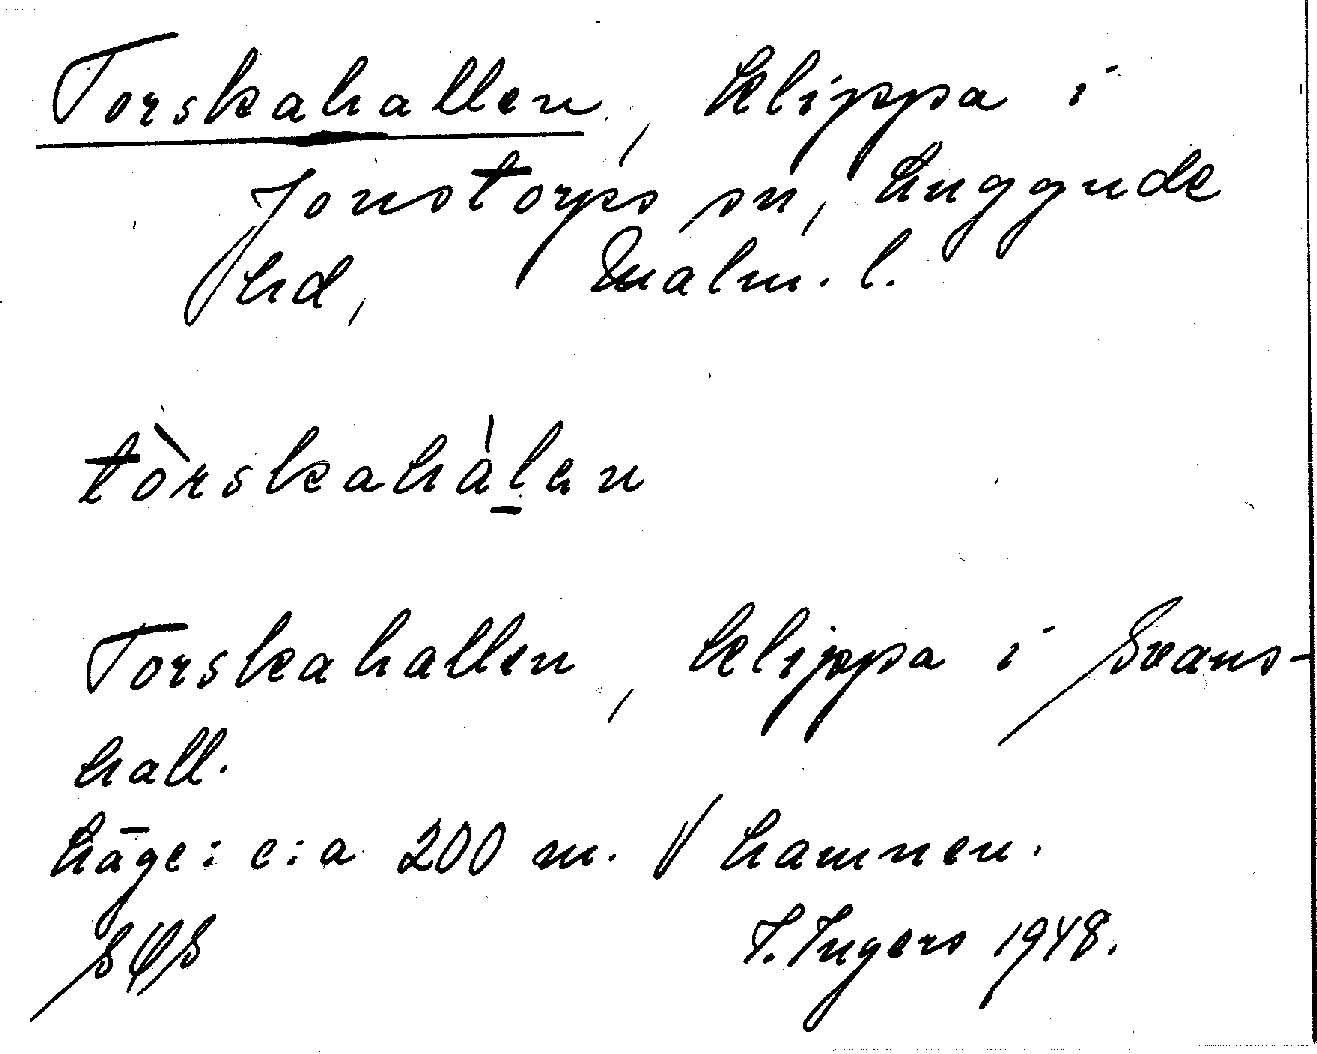 Torskahallen, klippa i
Jonstorps sn, Luggude
hd, Malm. l.
tòrskahàlen
Torskahallen, klippa i Svans-
hall.
Läge: c:a 200 m. V hamnen.
SOS I. Ingers 1948.